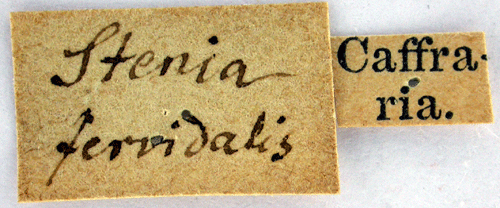 Stenia
fervidalis
Caffra-
ria.